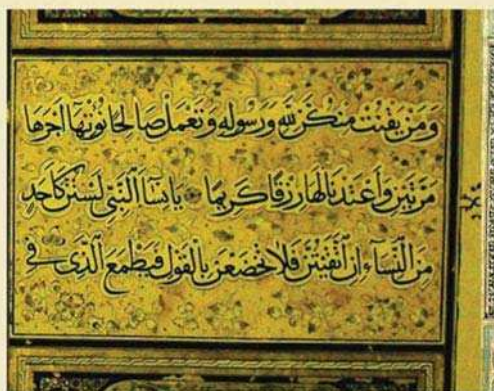 وَمَنْ يَقْنُتْ مِنْكُنَّ لِلّٰهِ وَرَسُولِهِ وَتَعْمَلْ صَالِحًا نُؤْتِهَا اَجْرَهَا
مَرَّتَيْنِ وَاَعْتَدْنَا لَهَا رِزْقًا كَرِيمًا يَا نِسَاۤءَ النَّبِيِّ لَسْتُنَّ كَاَحَدٍ
مِنَ النِّسَاۤءِ اِنِ اتَّقَيْتُنَّ فَلَا تَخْضَعْنَ بِالْقَوْلِ فَيَطْمَعَ الَّذِى فِى